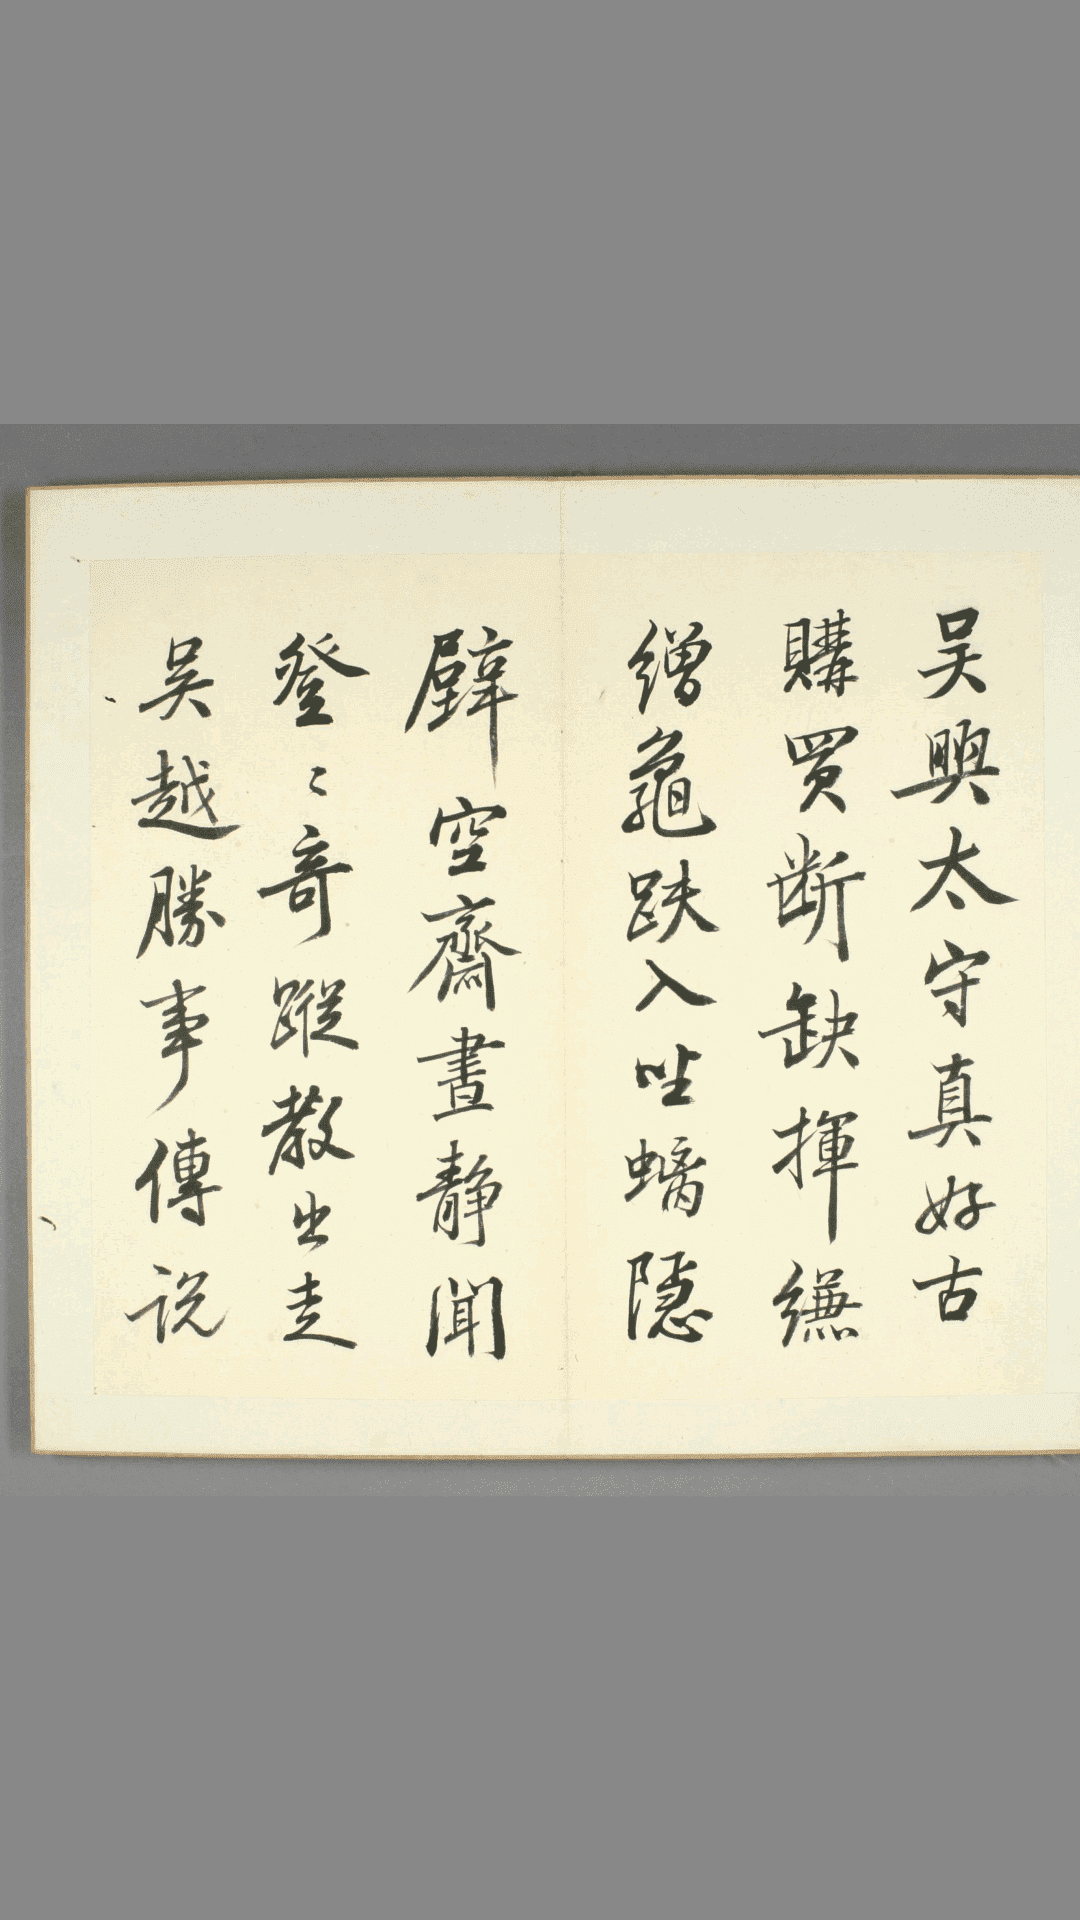 吴興太守真好古
購買斷缺揮縑
繒龜趺入坐螭隱
壁空齋晝静聞
登〻奇蹤散出走
吴越勝事傳說